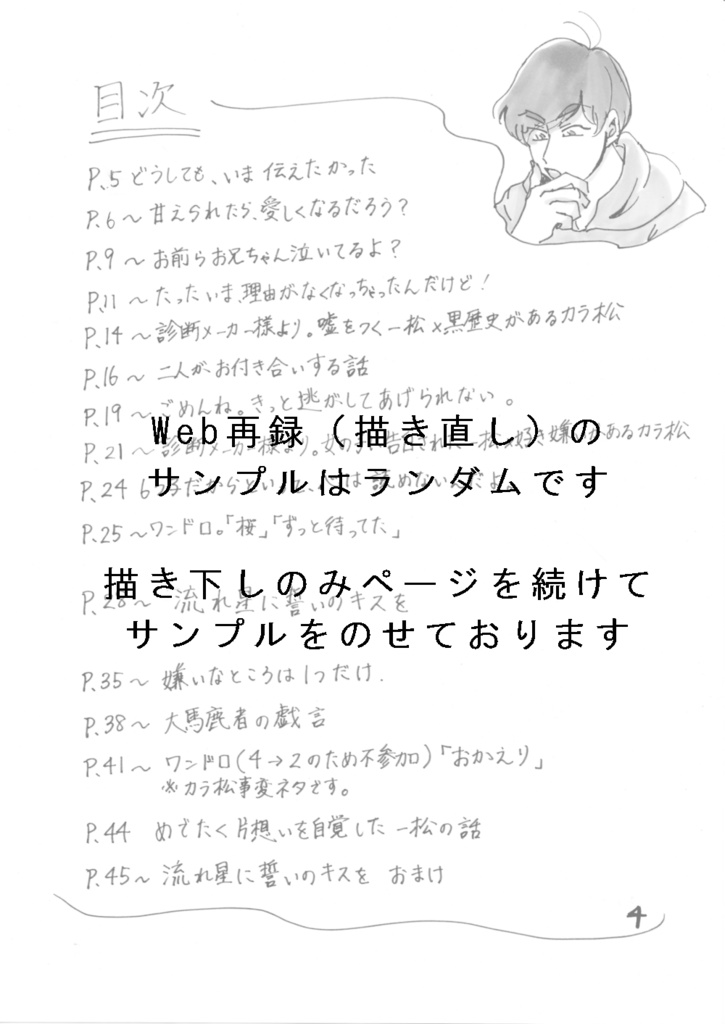 目次
P.5 どうしても、いま伝えたかった
P.6～甘えられたら、愛しくなるだろう？
P.9～お前らお兄ちゃん泣いてるよ？
P.11～たったいま、理由がなくなっちゃったんだけど！
P.14～診断メーカー様より。嘘をつく一松×黒歴史があるカラ松
P.16～二人がお付き合いする話
P.19～ごめんね。きっと逃がしてあげられない。
Web再録（描き直し）の
P.21～診断メーカー様より。 一松×好き嫌いがあるカラ松
サンプルはランダムです
P.24 6つ子だからといって、
P.25～ワンドロ。「桜」「ずっと待ってた」
描き下しのみページを続けて
P.28～流れ星に誓いのキスを
サンプルをのせております
P.35～嫌いなところは1つだけ.
P.38～大馬鹿者の戯言
P.41～ワンドロ(4→2のため不参加)「おかえり」
※カラ松事変ネタです。
P.44 めでたく片想いを自覚した一松の話
P.45～流れ星に誓いのキスを おまけ
4